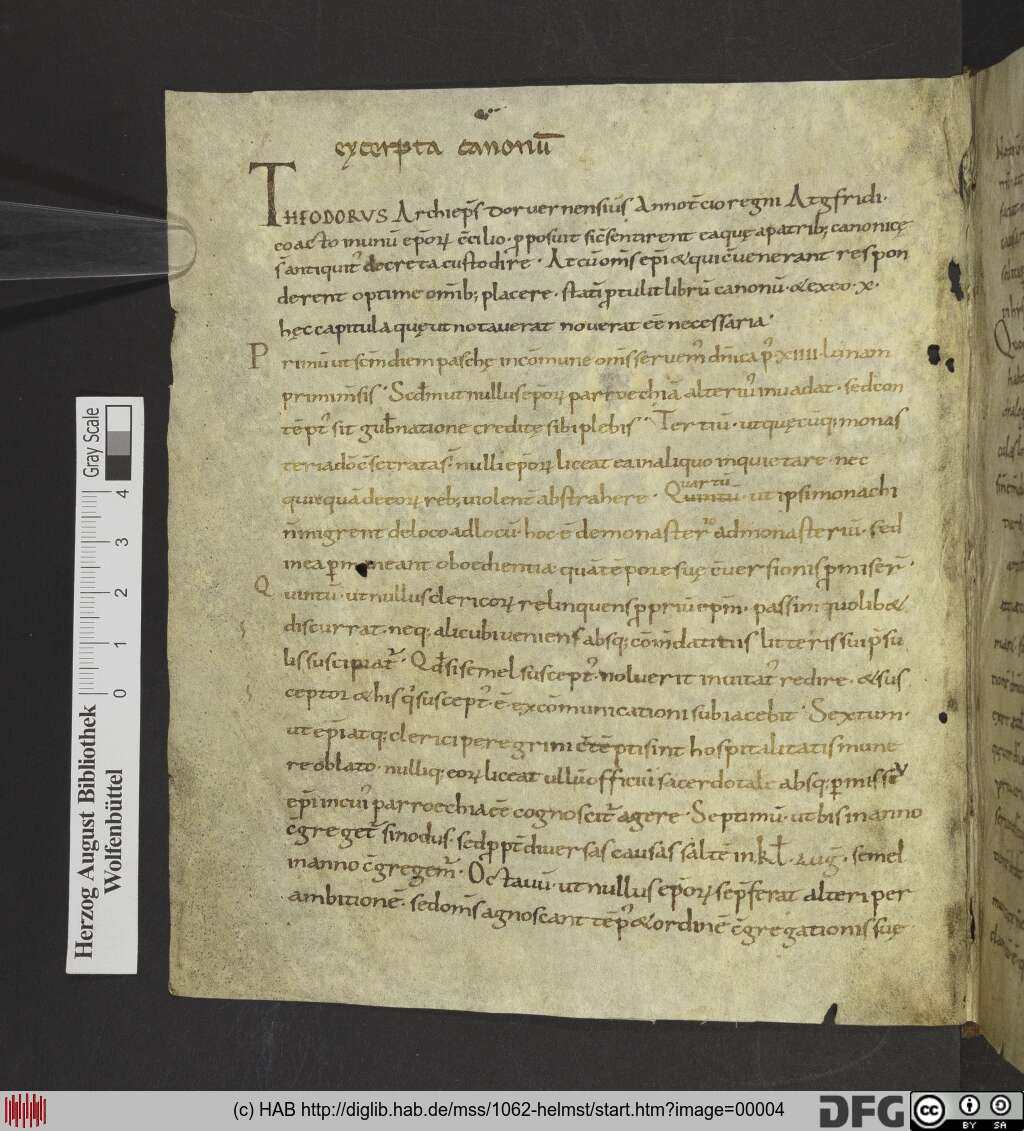 excerpta canonū
THEODORVS Archiep̄s dorvernensiū Anno t̄cio regni Atgfridi.
eo acto inunū ep̄oꝝ c̄cilio. ꝓposuit sic̄ sentirent eaquę apatrib; canonicę
s̄ antiquit᷒ decreta custodire. At cū om̄s ep̄i & qui c̄venerant respon
derent optime om̄ib; placere. statī ꝓtulit librū canonū. & ex eo .x.
hęc capitula quę ut notaverat noverat eē necessaria.
Primū ut sc̄m diem paschę incōmune om̄s servem᷒ dn̄ica p᷒ xiiii. lunam
primi m̄sis. Scd̄m ut nullus ep̄oꝝ parroechiā alteri᷒ invadat. sed con
tēpt᷒ sit gub̄natione creditę sibi plebis. Tertiū. ut quęcuq; monas
teria dō c̄secrata s̄. nulli ep̄oꝝ liceat ea in aliquo inquietare. nec
quicquā de eoꝝ reb; violent̄ abstrahere. Quintū uartū. ut ipsi monachi
n̄ migrent de loco ad locū. hoc ē de monasterio ad monasteriū. sed
in ea ꝑmaneant oboedientia quā tēpore suę c̄versionis ꝓmiser̄.
Quintū. ut nullus clericoꝝ relinquens ꝓpriū ep̄m. passim quolib&
discurrat. neq; alicubi veniens absq; cōm̄datitiis litteris sui p̄su
lis suscipiat᷒. Qd̄ si semel suscept᷒. noluerit invitat᷒ redire. & sus
ceptor & his qi suscept᷒. ē. excōmunicationi subiacebit. Sextum.
ut ep̄i atq; clerici peregrini c̄tēpti sint hospitalitatis mune
re oblato. nulliq; eoꝝ liceat ullū officiū sacerdotale absq; ꝑmissu
ep̄i in cui᷒ parroechia eē cognoscit᷒ agere. Septimū. ut bis in anno
c̄greget᷒ sinodus. sed ꝓpt̄ diversas causas saltē in kł. auḡ. semel
in anno c̄gregem᷒. Octavū. ut nullus ep̄oꝝ se p̄ferat alteri per
ambitionē. sed om̄s agnoscant tēp᷒ & ordinē c̄gregationis suę
Herzog August Bibliothek
Wolfenbüttel
0 1 2 3 4
Gray Scale
(c) HAB http://diglib.hab.de/mss/1062-helmst/start.htm?image=00004
DFG
cc BY SA